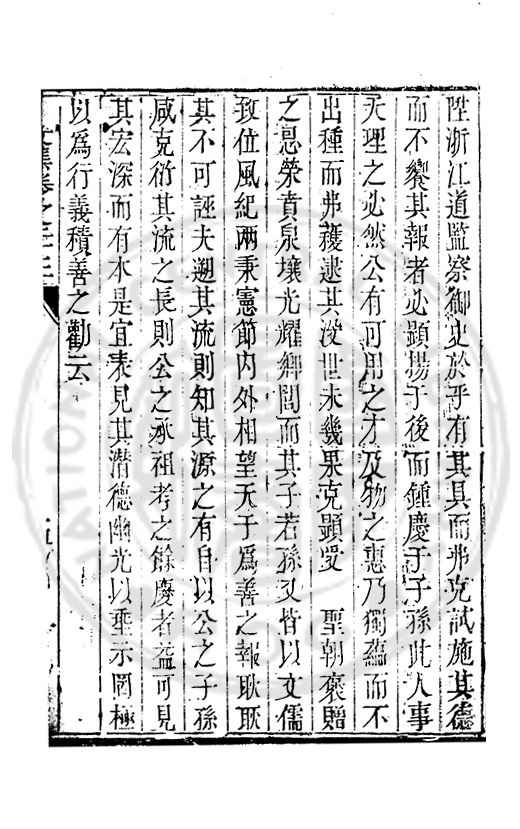 陞浙江道監察御史於乎有其具而弗克試施其德
而不饗其報者必顯揚于後而鍾慶于子孫此人事
天理之必然公有可用之才及物之惠乃獨蘊而不
出種而弗穫逮其沒世未幾果克顯受　聖朝褒贈
之恩榮賁泉壤光耀鄉閭而其子若孫又皆以文儒
致位風紀兩秉憲節內外相望天于為善之報耿耿
其不可誣夫遡其流則知其源之有自以公之子孫
咸克衍其流之長則公之承祖考之餘慶者益可見
其宏深而有本是宜表見其潛德幽光以垂示罔極
以為行義積善之勸云
文集卷之二三